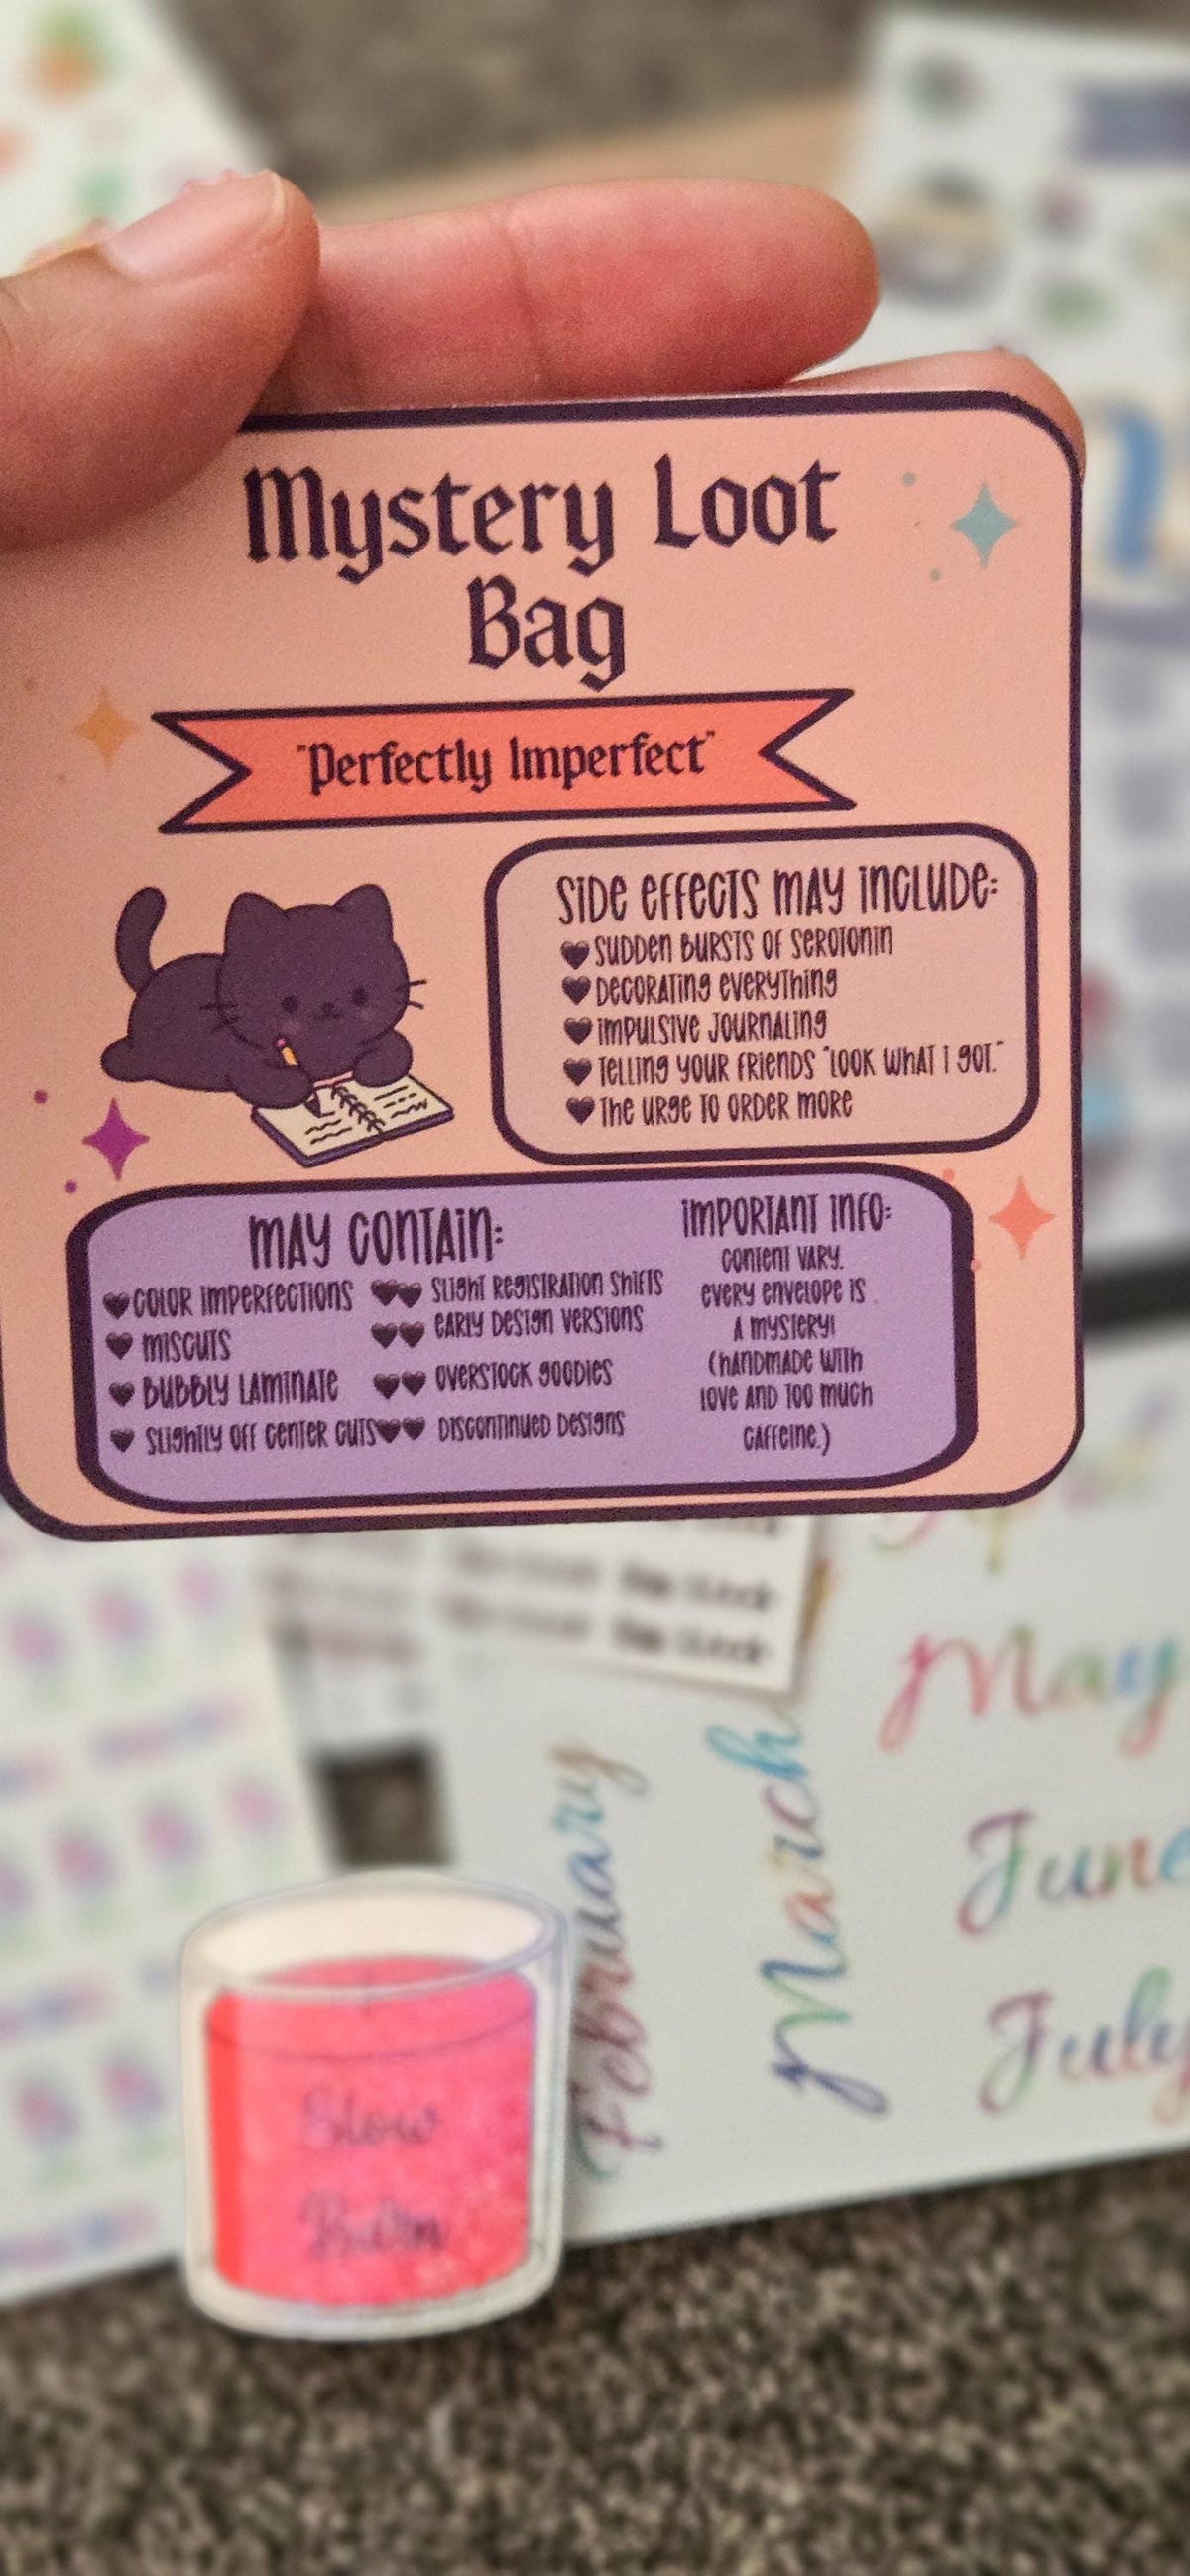 Mystery Loot
Bag
"Perfectly Imperfect"
Side effects may include:
Sudden bursts of serotonin
Decorating everything
Impulsive journaling
Telling your friends "look what I got."
The urge to order more
May contain:
Color imperfections
Miscuts
Bubbly laminate
Slightly off center cuts
Slight registration shifts
Early design versions
Overstock goodies
Discontinued designs
Important info:
Content vary.
Every envelope is
a mystery!
(Handmade with
love and too much
caffeine.)
February
March
May
June
July
Slow
Burn